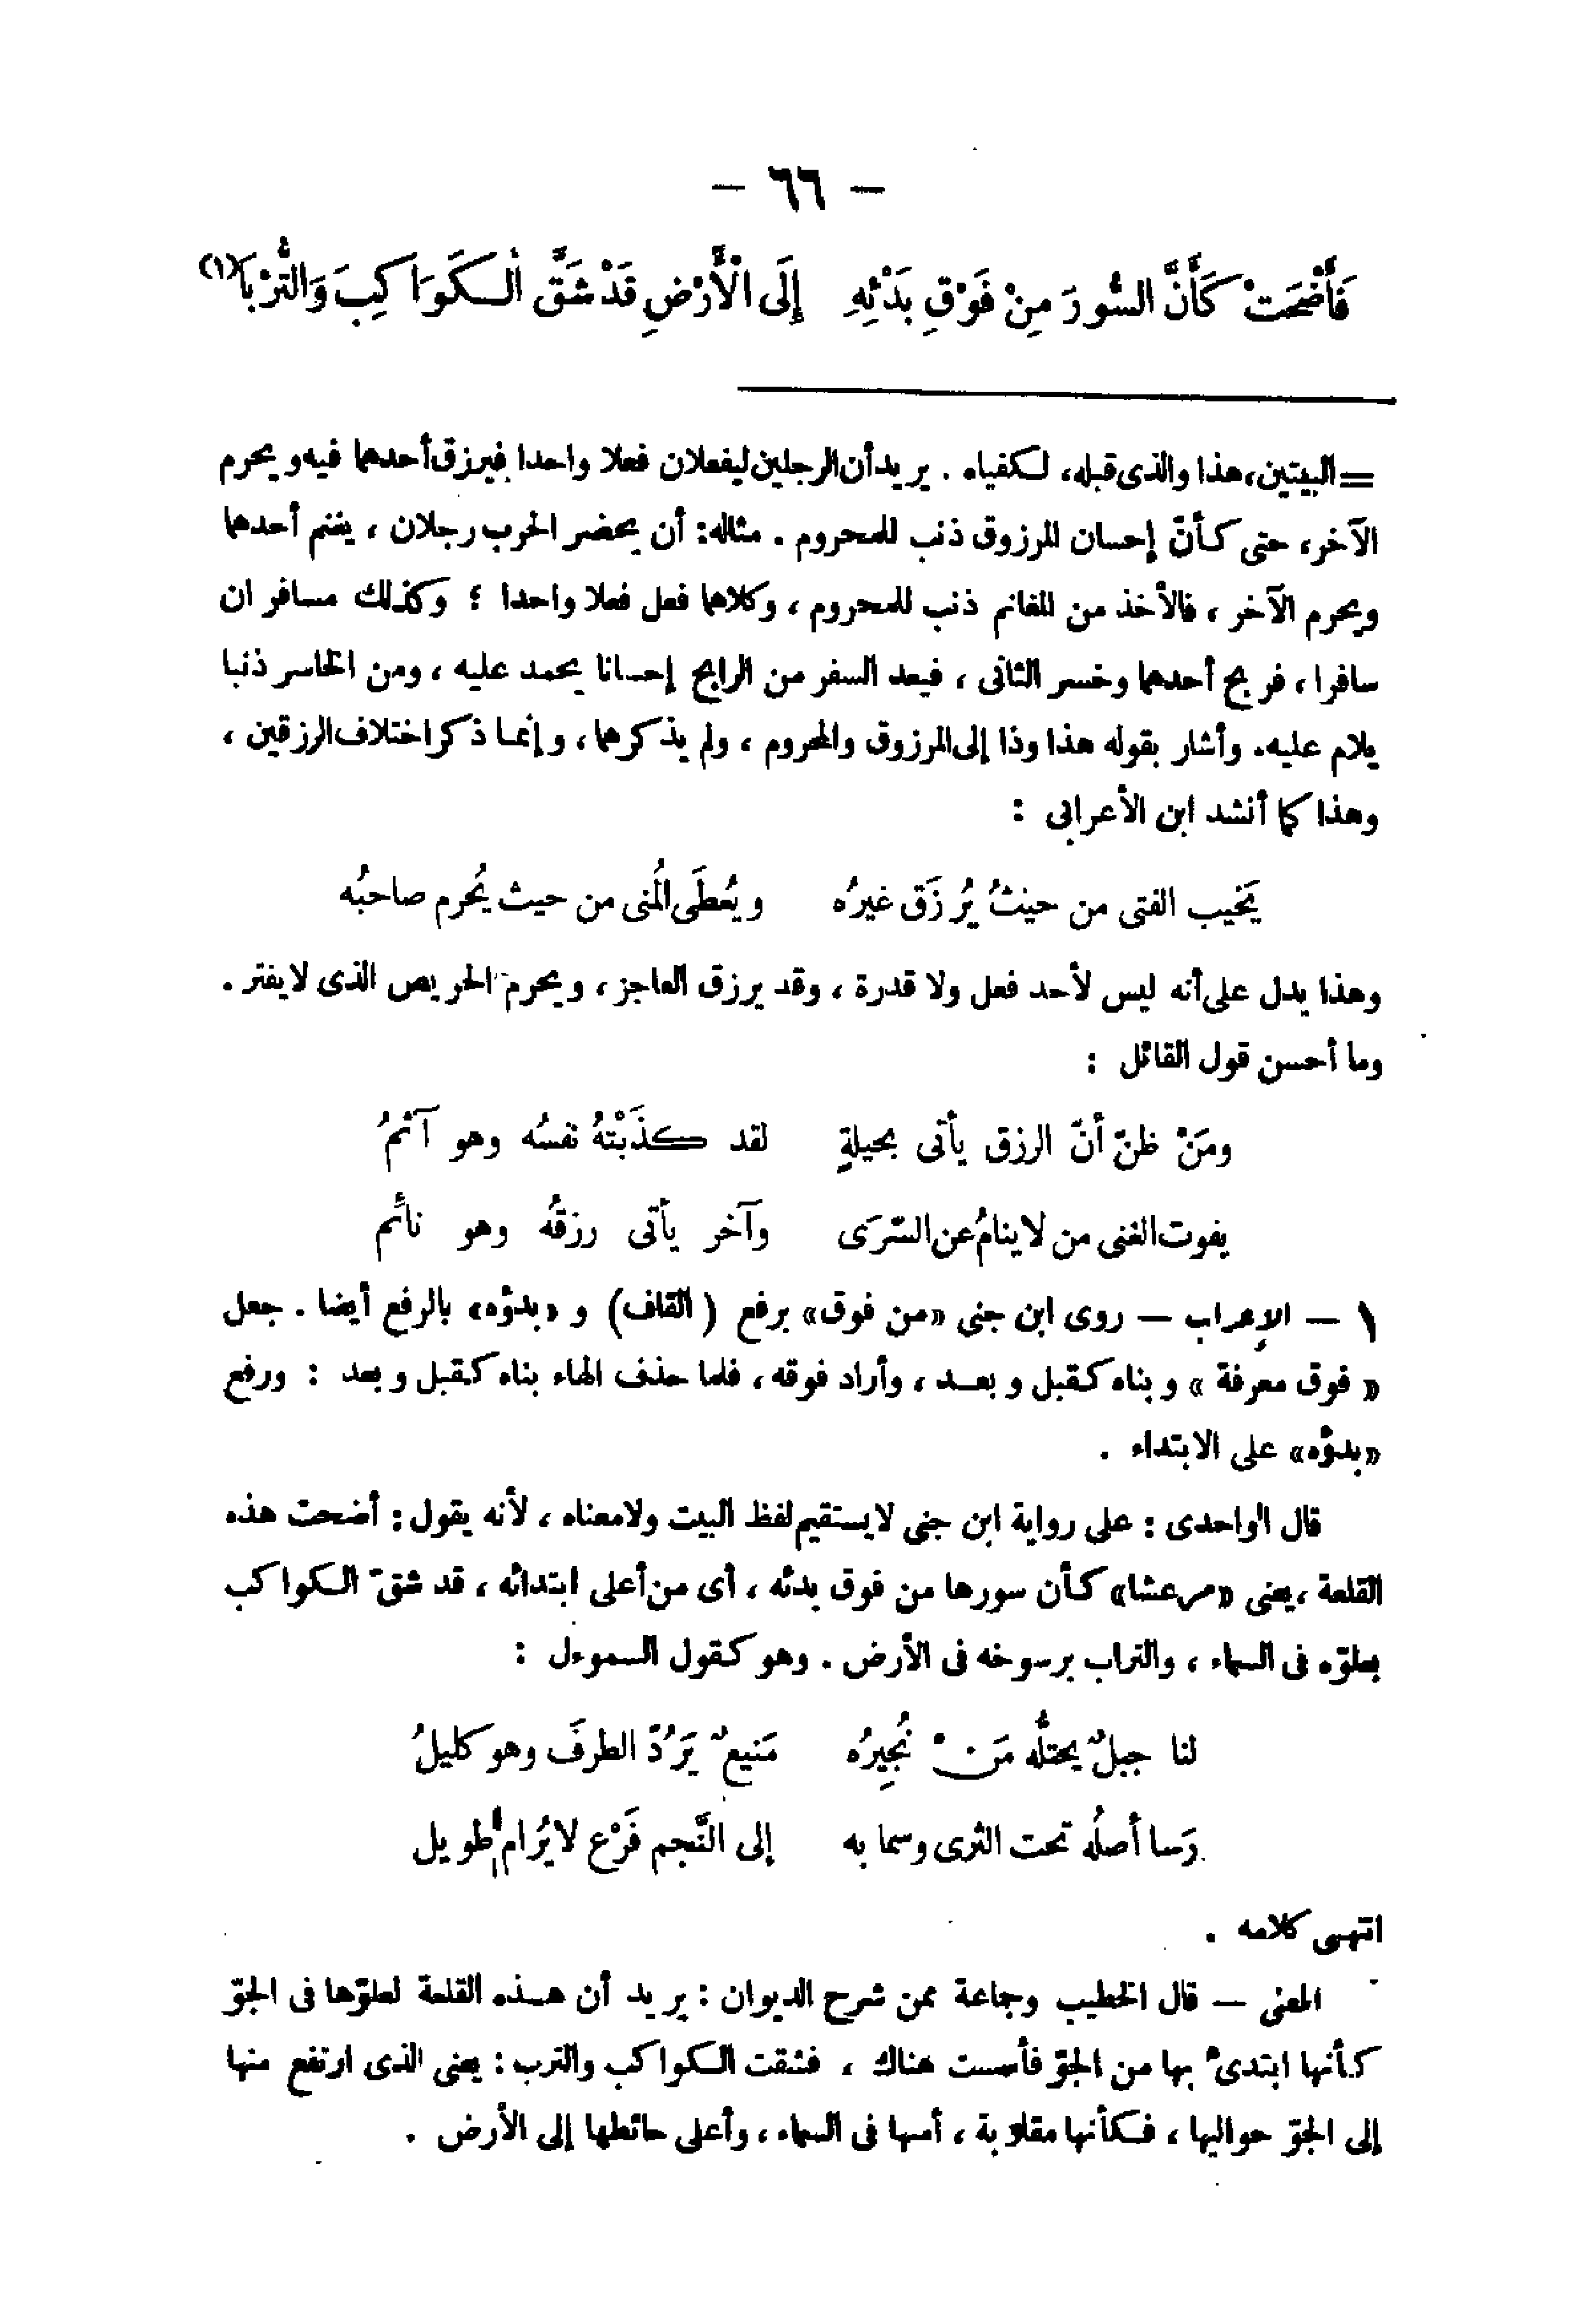 — ٦٦ —
فَأَضْحَتْ كَأَنَّ السُّورَ مِنْ فَوْقِ بَدْئِهِ إِلَى الْأَرْضِ قَدْ شَقَّ الْكَوَاكِبَ وَالتُّرْبَا (١)
= البيتين، هذا والذى قبله، لكفياه . يريد أن الرجلين ليفعلان فعلا واحدا فيرزق أحدهما فيه ويحرم
الآخر، حتى كأنّ إحسان المرزوق ذنب للمحروم . مثاله: أن يحضر الحرب رجلان ، يغنم أحدهما
ويحرم الآخر ، فالأخذ من المغانم ذنب للمحروم ، وكلاهما فعل فعلا واحدا ؛ وكذلك مسافران
سافرا ، فربح أحدهما وخسر الثانى ، فيعد السفر من الرابح إحسانا يحمد عليه ، ومن الخاسر ذنبا
يلام عليه. وأشار بقوله هذا وذا إلى المرزوق والمحروم ، ولم يذكرهما، وإنما ذكر اختلاف الرزقين ،
وهذا كما أنشد ابن الأعرابى :
يَخيب الفتى من حيثُ يُرزَق غيرُه ويُعطَى المُنى من حيث يُحرم صاحبُه
وهذا يدل على أنه ليس لأحد فعل ولا قدرة ، وقد يرزق العاجز ، ويحرم الحريص الذى لا يفتر .
وما أحسن قول القائل :
ومَنْ ظنّ أنّ الرزق يأتى بحيلةٍ لقد كذَبَتْهُ نفسُه وهو آثمُ
يفوت الغنى من لا ينامُ عن السّرَى وآخر يأتى رزقُه وهو نائم
١ — الإعراب — روى ابن جنى «من فوق» برفع (القاف) و «بدؤه» بالرفع أيضا . جعل
« فوق معرفة » وبناه كقبل وبعد ، وأراد فوقه ، فلما حذف الهاء بناه كقبل وبعد : ورفع
«بدؤه» على الابتداء .
قال الواحدى : على رواية ابن جنى لا يستقيم لفظ البيت ولا معناه ، لأنه يقول : أضحت هذه
القلعة ، يعنى «مرعشا» كأن سورها من فوق بدئه ، أى من أعلى ابتدائه ، قد شقّ الكواكب
بعلوّه فى السماء ، والتراب برسوخه فى الأرض . وهو كقول السموءل :
لنا جبلٌ يحتلُّه مَنْ نُجِيرُه مَنيعٌ يَرُدّ الطرفَ وهو كليلُ
رَسا أصلُه تحت الثرى وسما به إلى النَّجم فَرْع لا يُرام طويل
انتهى كلامه .
المعنى — قال الخطيب وجماعة ممن شرح الديوان : يريد أن هذه القلعة لعلوّها فى الجوّ
كأنها ابتدئ بها من الجوّ فأسست هناك ، فشقت الكواكب والترب : يعنى الذى ارتفع منها
إلى الجوّ حواليها ، فكأنها مقلوبة ، أسها فى السماء ، وأعلى حائطها إلى الأرض .